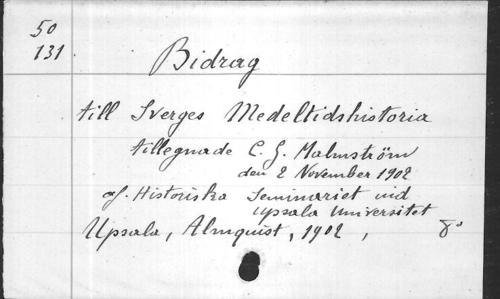 50
131
Bidrag
till Sverges Medeltidshistoria
tillegnade C. G. Malmström
den 2 November 1902
af Historiska Seminariet vid
Upsala Universitet
Upsala, Almquist, 1902, 8°